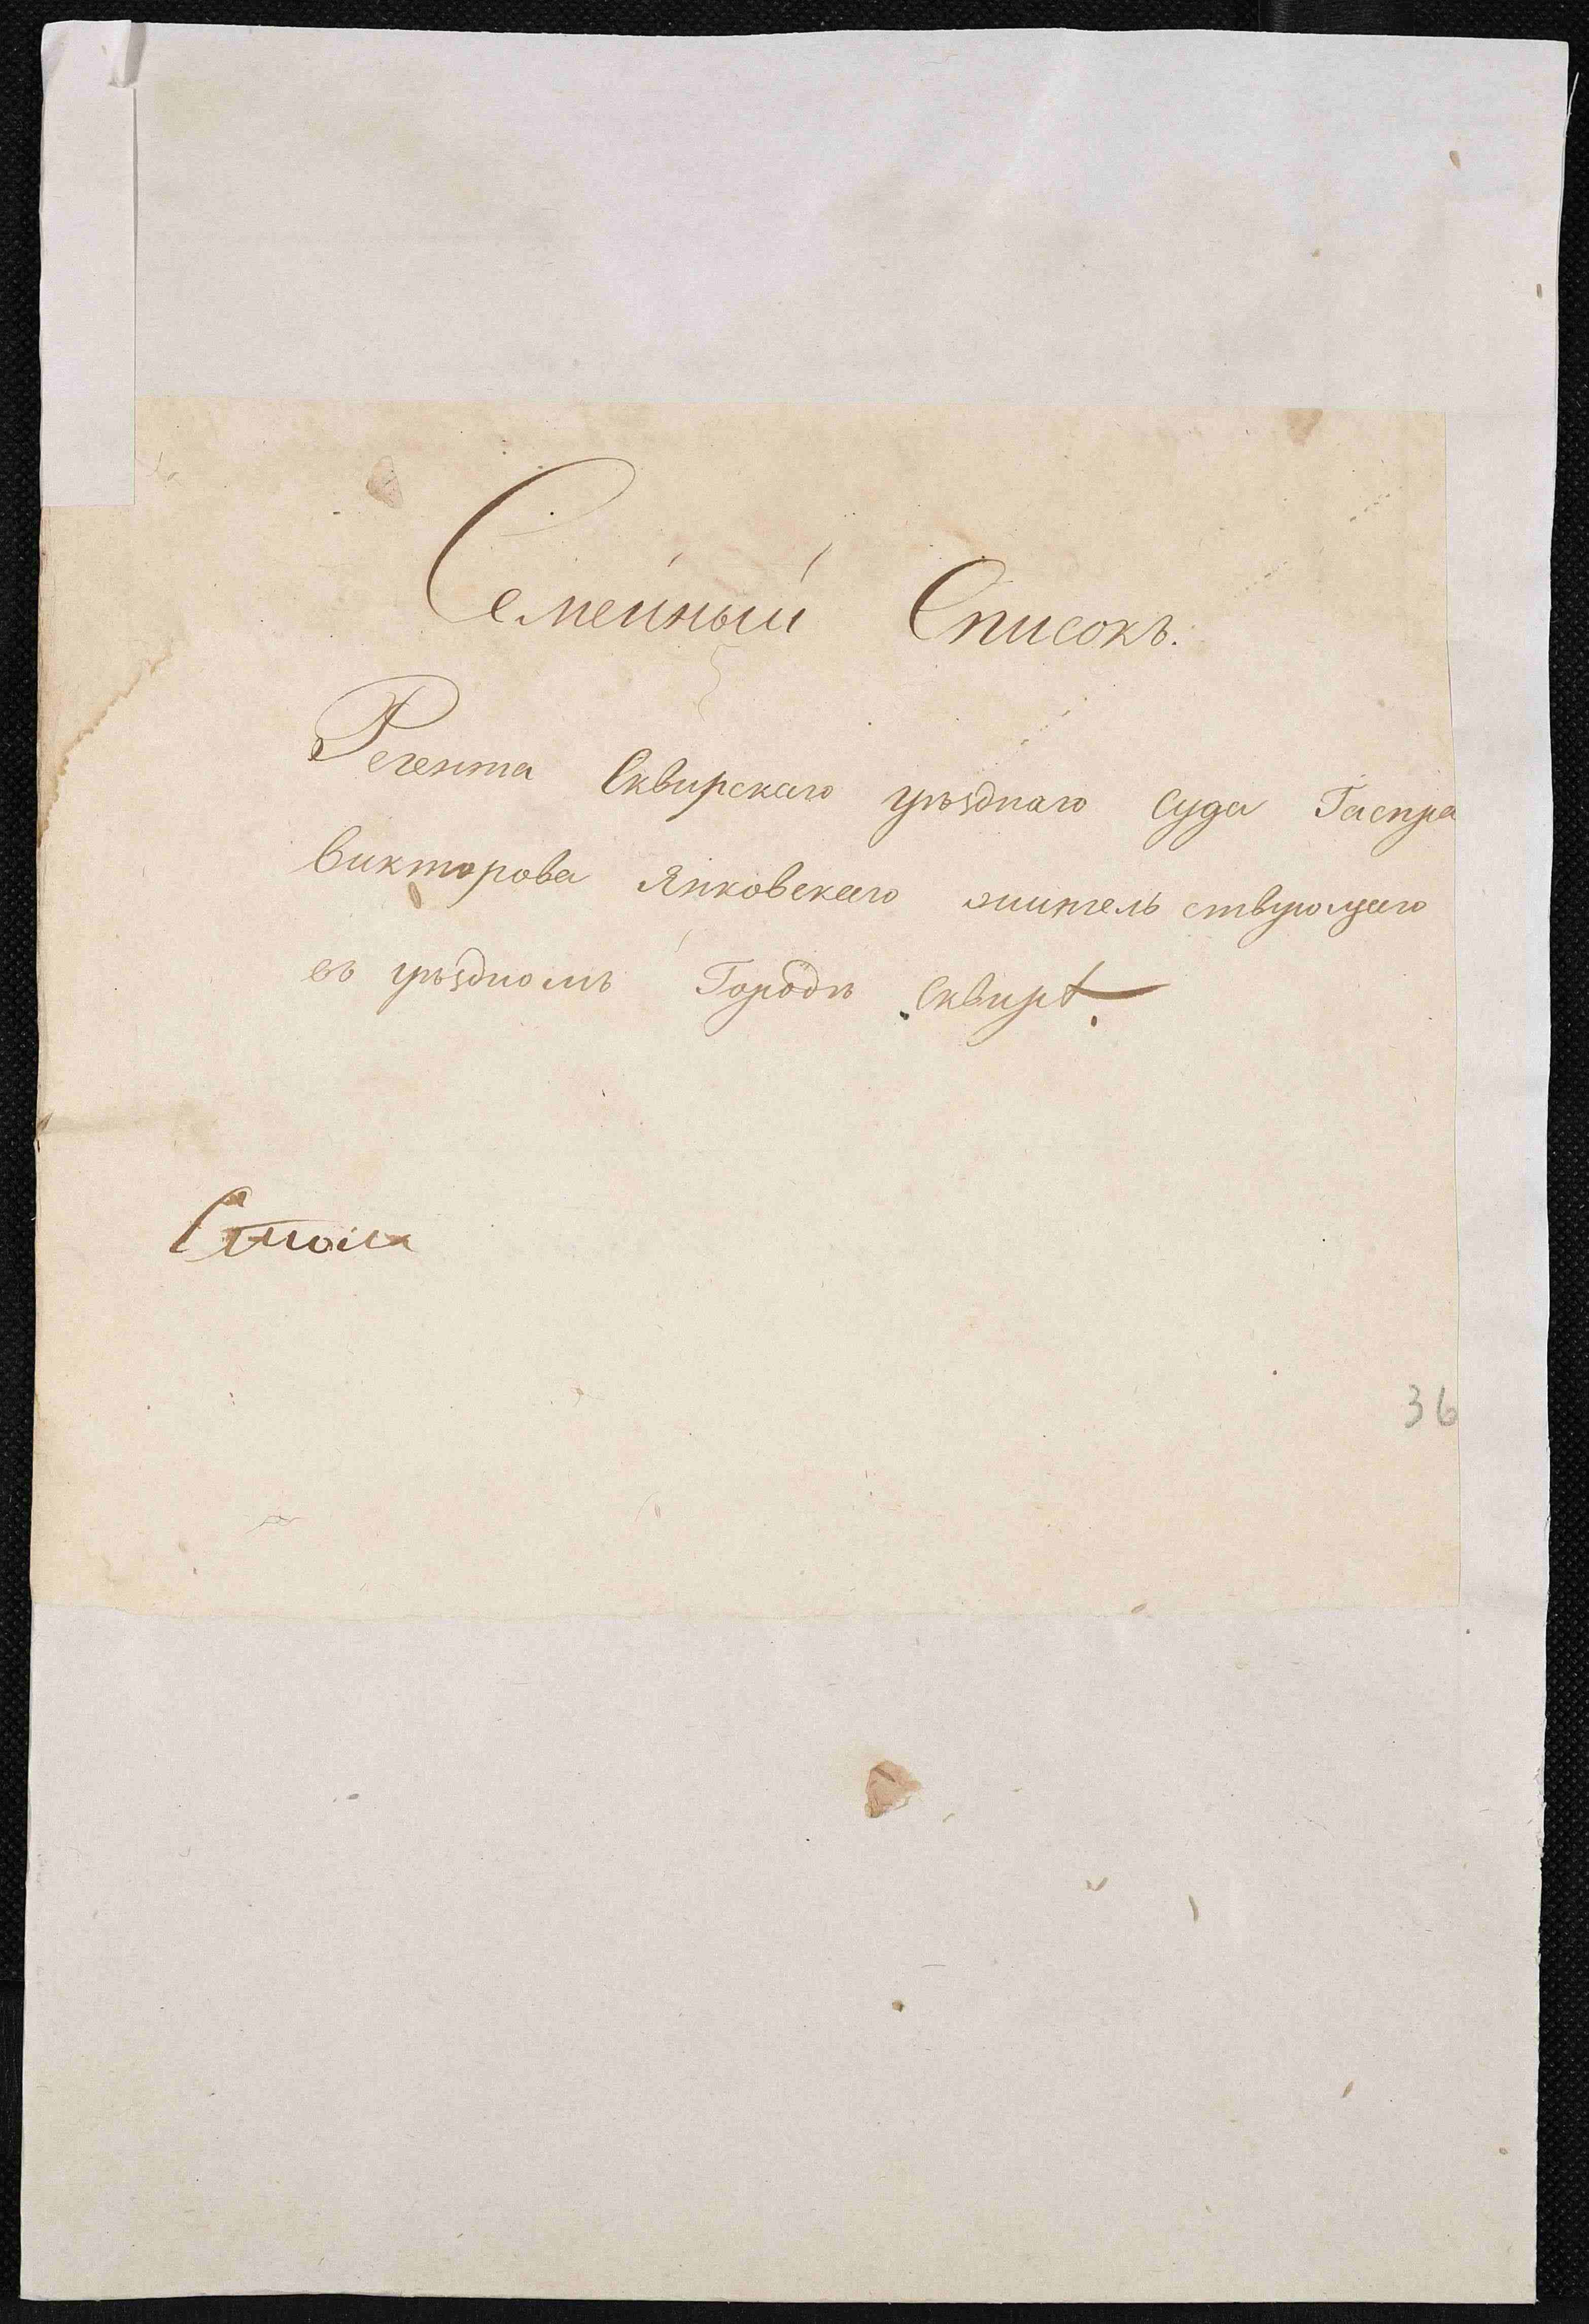 Семейный Списокъ.
Регента Сквирскаго уѣзднаго Суда Гаспра
Викторова Янковскаго жительствующаго
въ уѣздномъ Городѣ Сквирѣ.
36